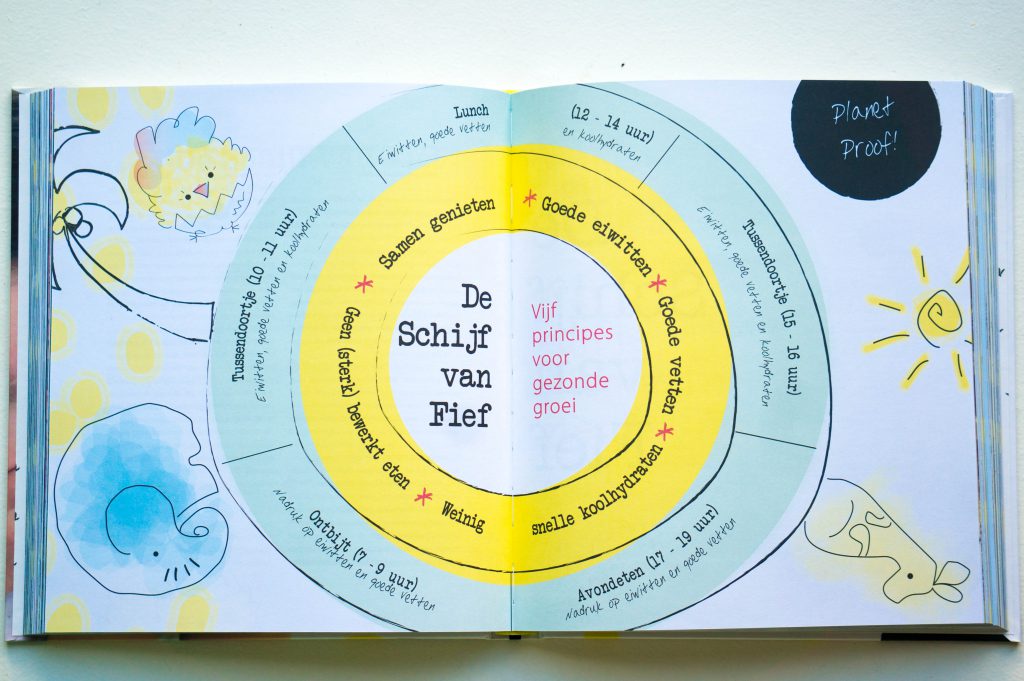 De
Schijf
van
Fief
Vijf
principes
voor
gezonde
groei
Samen genieten
* Goede eiwitten
* Goede vetten
* Weinig snelle koolhydraten
* Geen (sterk) bewerkt eten
*
Ontbijt (7 - 9 uur)
Nadruk op eiwitten en goede vetten
Tussendoortje (10 - 11 uur)
Eiwitten, goede vetten en koolhydraten
Lunch (12 - 14 uur)
Eiwitten, goede vetten en koolhydraten
Tussendoortje (15 - 16 uur)
Eiwitten, goede vetten en koolhydraten
Avondeten (17 - 19 uur)
Nadruk op eiwitten en goede vetten
Planet
Proof!